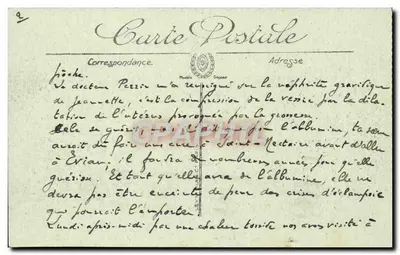 2
Carte Postale
Correspondance
Adresse
proche.
Le docteur Perrin m'a renseigné sur la néphrite gravidique
de Jeannette, c'est la compression de la vessie par la dila-
tation de l'utérus provoquée par la grossesse
cela se guérit l'albumine, ta sœur
aurait dû faire une cure à Saint-Nectaire avant d'aller
à Evian, il faudra de nombreuses années pour qu'elle
guérisse. Et tant qu'elle aura de l'albumine, elle ne
devra pas être enceinte de peur des crises d'éclampsie
qui pourrait l'emporter.
Lundi après-midi par une chaleur torride nous avons visité à